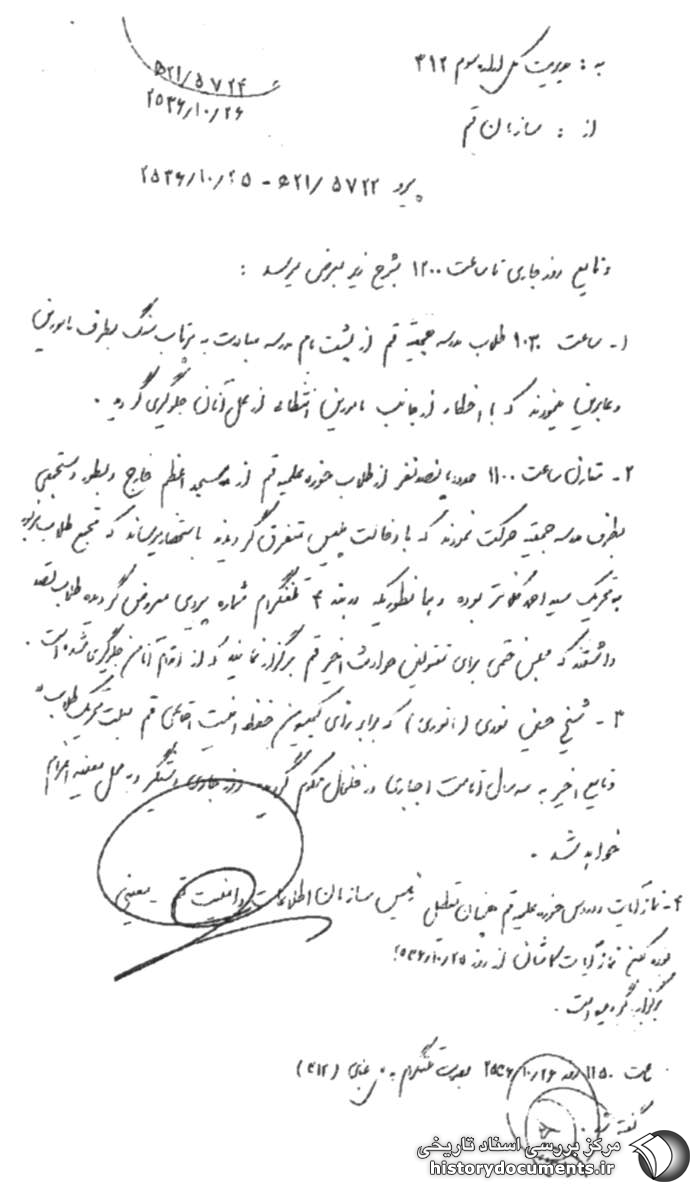 به : مدیریت کل اداره سوم ۳۱۲
۵۲۱/۵۷۲۴
۲۵۳۶/۱۰/۲۶
از : سازمان قم
پیرو ۵۷۲۲/۵۲۱ - ۲۵۳۶/۱۰/۲۵
وقایع روز جاری تا ساعت ۱۲۰۰ بشرح زیر بعرض میرسد :
۱- ساعت ۱۰۳۰ طلاب مدرسه حجتیه قم از پشت بام مدرسه مبادرت به پرتاب سنگ بطرف مامورین
و عابرین مینمودند که با اخطار از جانب مامورین انتظامی از عمل آنان جلوگیری گردید .
۲- مقارن ساعت ۱۱۰۰ حدود پانصد نفر از طلاب حوزه علمیه قم از مسجد اعظم خارج و بطور دستجمعی
بطرف مدرسه حجتیه حرکت نمودند که با دخالت پلیس متفرق گردیدند باستحضار میرساند که تجمع طلاب مزبور
به تحریک سید احمد کلانتر بوده و همانطوریکه در بند ۴ تلفنگرام شماره پیروی معروض گردیده طلاب قصد
داشتند که مجلس ختمی برای مقتولین حوادث اخیر قم برگزار نمایند که از اقدام آنان جلوگیری شده است .
۳- شیخ حسین نوری ( انوری ) که برابر رای کمیسیون حفظ امنیت اجتماعی قم بعلت تحریک طلاب در
وقایع اخیر به سه سال اقامت اجباری در خلخال محکوم گردیده روز جاری دستگیر و به محل معینه اعزام
خواهد شد .
رئیس سازمان اطلاعات و امنیت قم - معینی
۴- نماز آیات و دروس حوزه علمیه قم همچنان تعطیل
بوده لیکن نماز آیات کاشانی از روز ۲۵/۱۰/۲۵۳۶
برگزار گردیده است .
ساعت ۱۱۵۰ روز ۲۵۳۶/۱۰/۲۶ بصورت تلفنگرام به (۳۱۲)
گفته شد .
مرکز بررسی اسناد تاریخی
historydocuments.ir